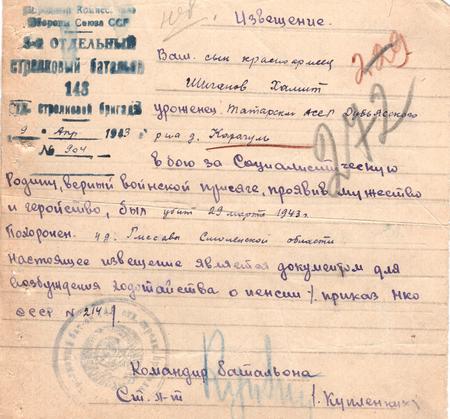 Народный Комиссариат
Обороны Союза ССР
3-й ОТДЕЛЬНЫЙ
стрелковый батальон
148
отд. стрелковой бригады
9 Апр 1943
№ 904
Извещение.
229
272
Ваш сын красноармеец
Шиганов Халит
уроженец Татарская АССР Дубъязского
р-на д. Карагуль
в бою за Социалистическую
Родину, верный воинской присяге, проявив мужество
и геройство, был убит 29 марта 1943 г.
Похоронен Смоленской области
Настоящее извещение является документом для
возбуждения ходотайства о пенсии приказ НКО
СССР № 214
Командир батальона
Ст. л-т